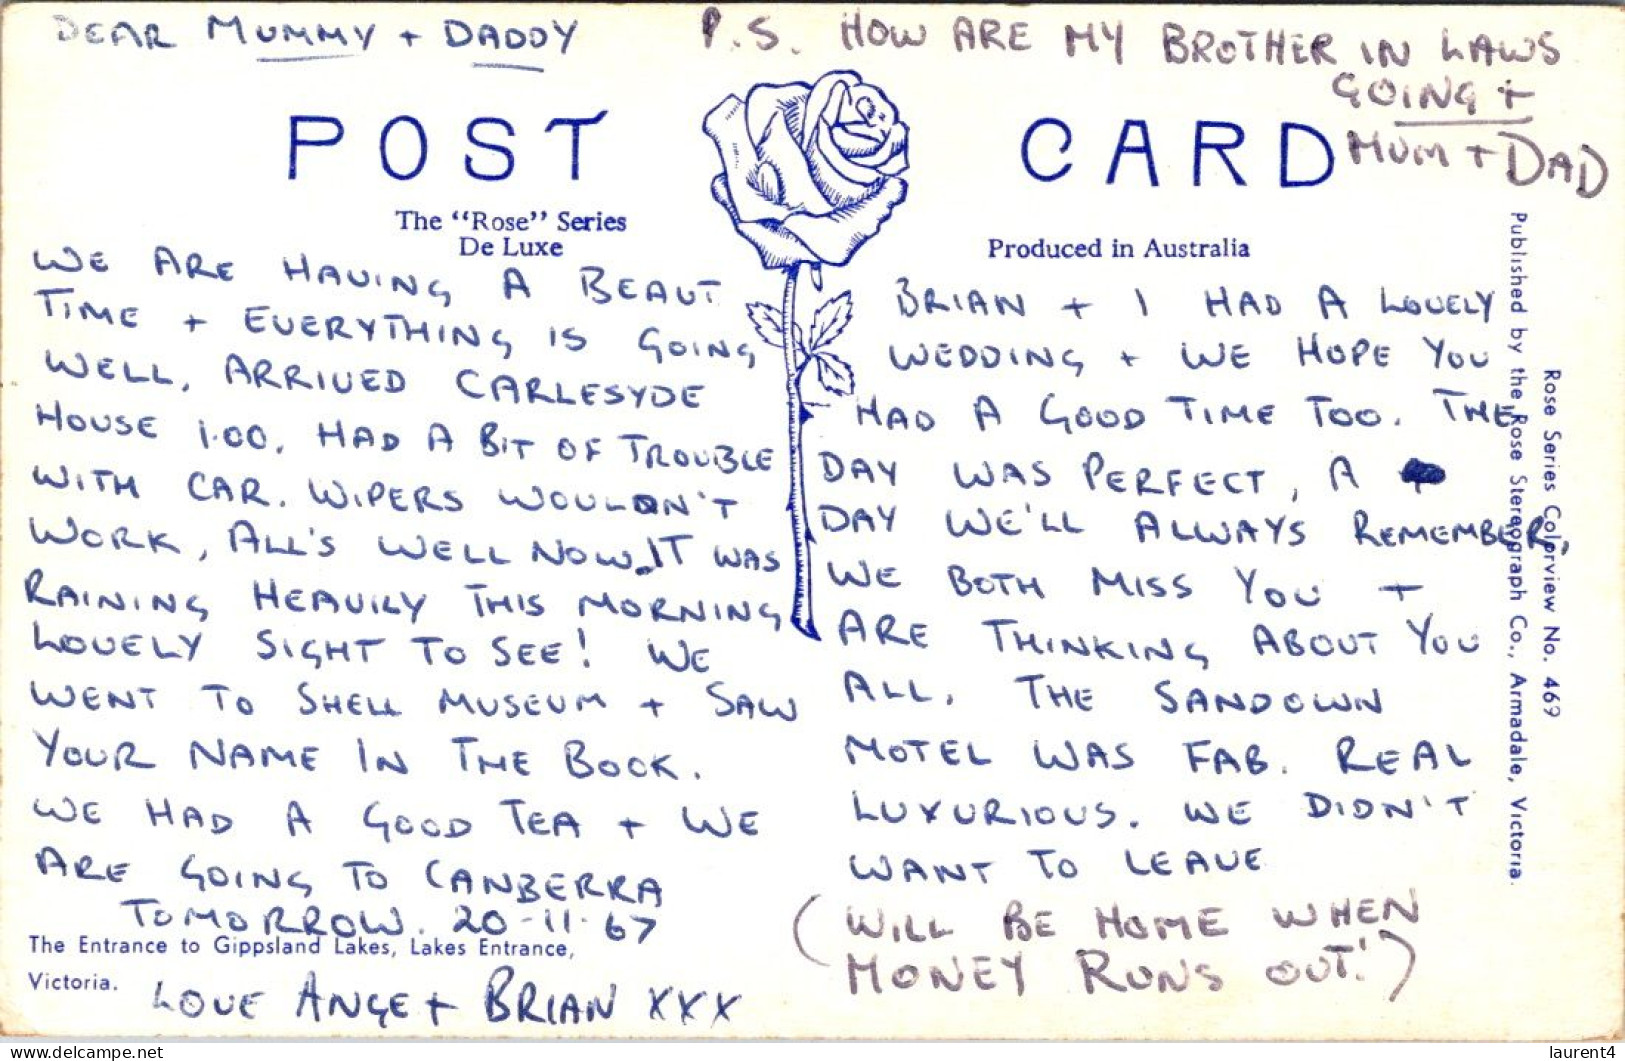 DEAR MUMMY + DADDY
P.S. HOW ARE MY BROTHER IN LAWS
GOING +
MUM + DAD
POST CARD
The "Rose" Series
De Luxe
Produced in Australia
WE ARE HAVING A BEAUT
TIME + EVERYTHING IS GOING
WELL, ARRIVED CARLESYDE
HOUSE 1.00. HAD A BIT OF TROUBLE
WITH CAR. WIPERS WOULDN'T
WORK, ALL'S WELL NOW. IT WAS
RAINING HEAVILY THIS MORNING
LOVELY SIGHT TO SEE! WE
WENT TO SHELL MUSEUM + SAW
YOUR NAME IN THE BOOK.
WE HAD A GOOD TEA + WE
ARE GOING TO CANBERRA
TOMORROW. 20-11-67
The Entrance to Gippsland Lakes, Lakes Entrance,
Victoria.
LOVE ANGE + BRIAN XXX
BRIAN + I HAD A LOVELY
WEDDING + WE HOPE YOU
HAD A GOOD TIME TOO. THE
DAY WAS PERFECT, A
DAY WE'LL ALWAYS REMEMBER,
WE BOTH MISS YOU +
ARE THINKING ABOUT YOU
ALL. THE SANDOWN
MOTEL WAS FAB. REAL
LUXURIOUS. WE DIDN'T
WANT TO LEAVE
(WILL BE HOME WHEN
MONEY RUNS OUT!)
Rose Series Colorview No. 469
Published by the Rose Stereograph Co., Armadale, Victoria.
https://www.delcampe.net
laurent4